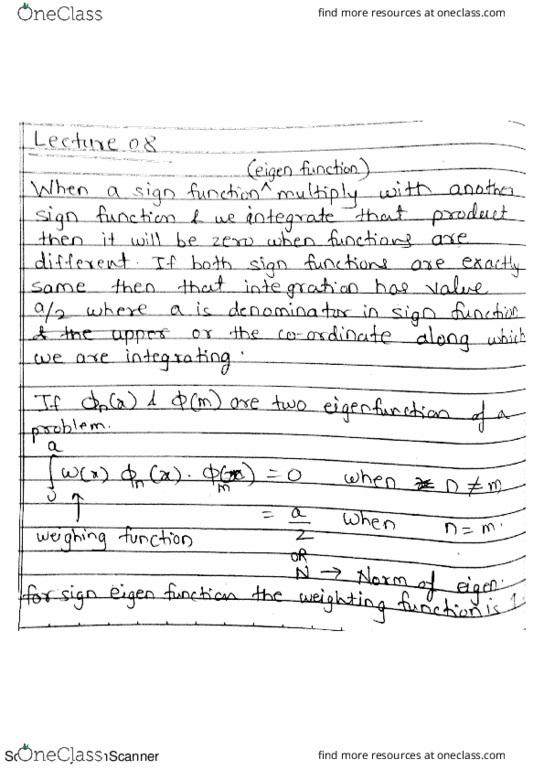 OneClass find more resources at oneclass.com
Lecture 08
(eigen function)
When a sign function ^ multiply with another
sign function & we integrate that product
then it will be zero when functions are
different. If both sign functions are exactly
same then that integration has value
a/2 where a is denominator in sign function
& the upper or the co-ordinate along which
we are integrating.
If ϕn(x) & ϕ(m) are two eigenfunction of a
problem.
a
∫ w(x) ϕn(x) . ϕm = 0 when n ≠ m
0
= a/2 when n = m.
weighing function
OR
N → Norm of eigen.
for sign eigen function the weighting function is 1.
OneClass Scanner find more resources at oneclass.com